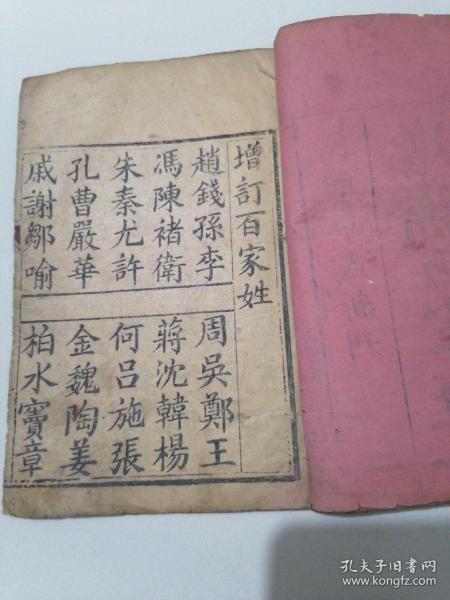 增訂百家姓
趙錢孫李
周吳鄭王
馮陳褚衛
蔣沈韓楊
朱秦尤許
何呂施張
孔曹嚴華
金魏陶姜
戚謝鄒喻
柏水竇章
孔夫子旧书网
www.kongfz.com